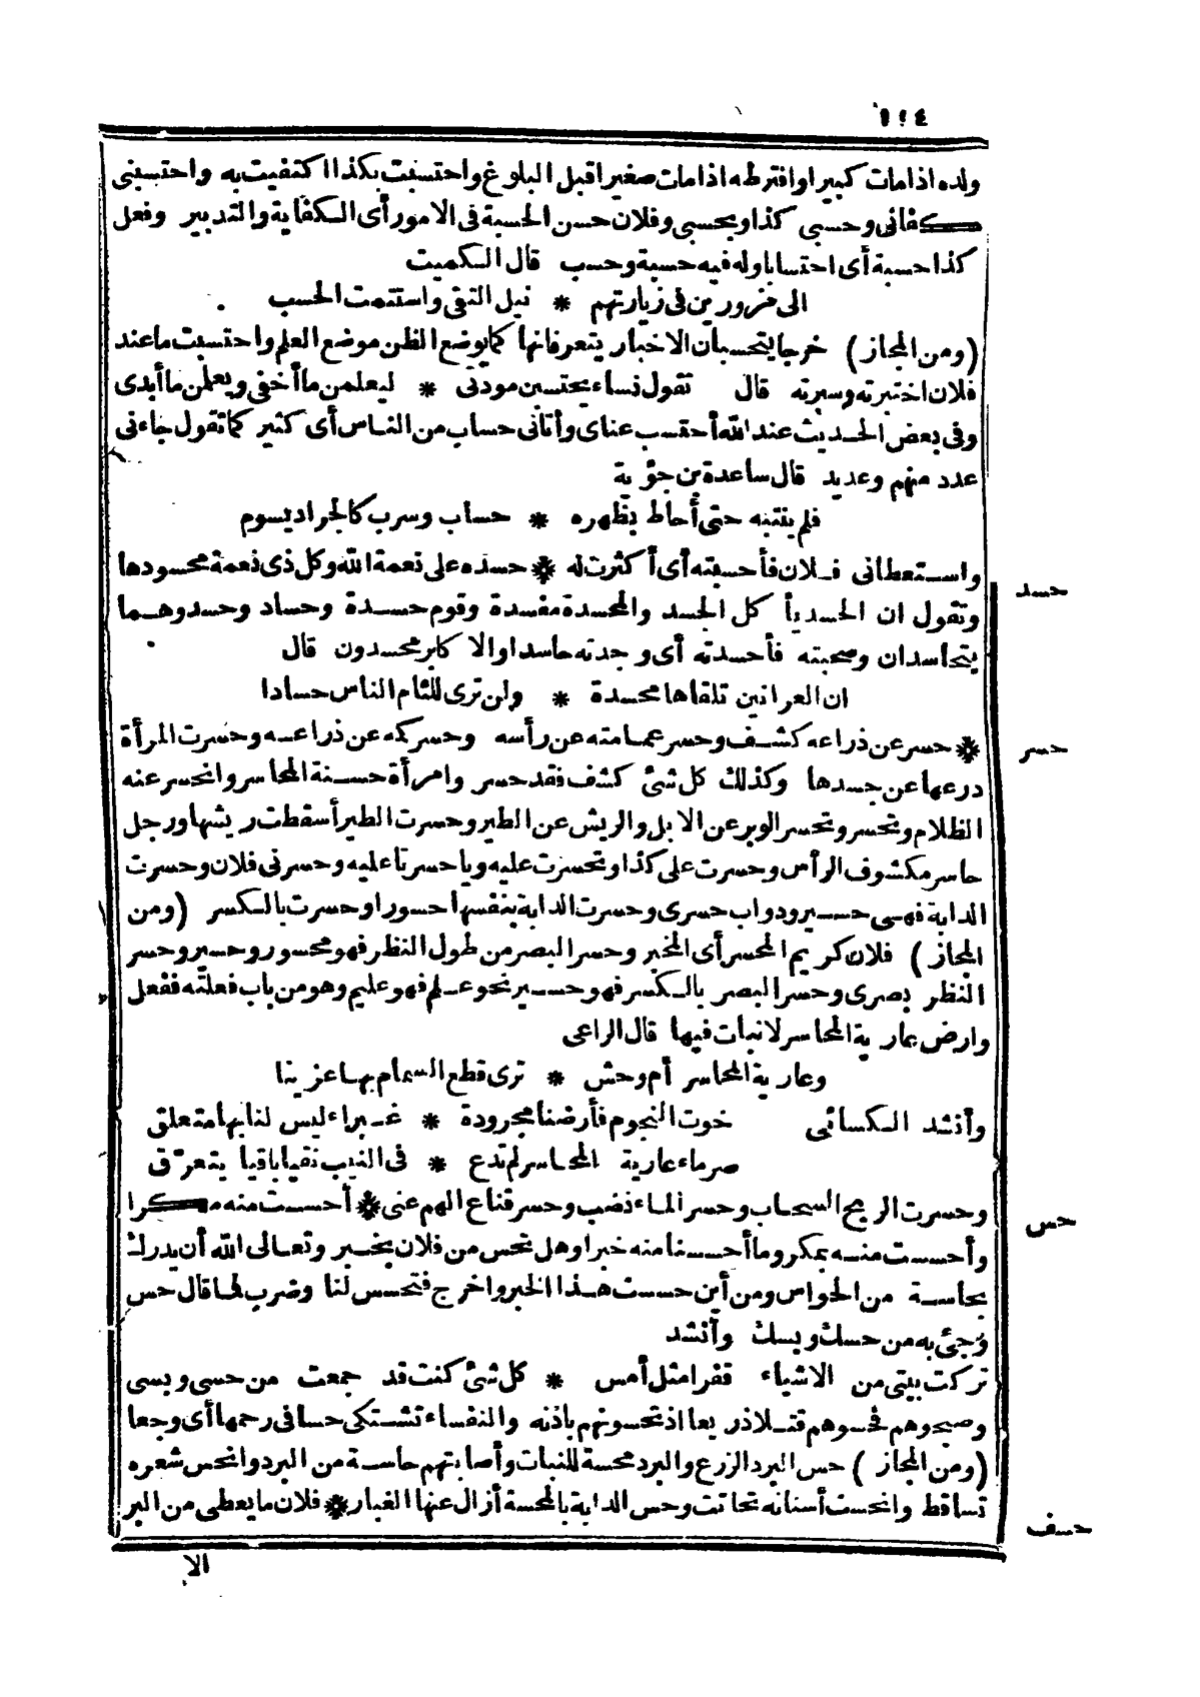 ١٠٤
ولده اذا مات كبيرا وافترطه اذا مات صغيرا قبل البلوغ واحتسبت بكذا اكتفيت به واحتسبنى
كفانى وحسبى كذا وبحسبى وفلان حسن الحسبة فى الامور أى الكفاية والتدبير وفعل
كذا حسبة أى احتسابا وله فيه حسبة وحسب قال الكميت
الى مزورين فى زيارتهم * نيل التقى واستتمت الحسب
(ومن المجاز) خرجا يتحسبان الاخبار يتعرفانها كما يوضع الظن موضع العلم واحتسبت ما عند
فلان اختبرته وسبرته قال تقول نساء يحتسبن مودتى * ليعلمن ما أخفى ويعلمن ما أبدى
وفى بعض الحديث عند الله أحتسب عناى وأتانى حساب من الناس أى كثير كما تقول جاءنى
عدد منهم وعديد قال ساعدة بن جؤية
فلم ينتبه حتى أحاط بظهره * حساب وسرب كالجراد يسوم
واستعطانى فلان فأحسبته أى أكثرت له * حسده على نعمة الله وكل ذى نعمة محسودها
حسد
وتقول ان الحسد يأكل الجسد والمحسدة مفسدة وقوم حسدة وحساد وحسد وهما
يتحاسدان وصحبته فأحسدته أى وجدته حاسدا والاكابر محسدون قال
ان العرانين تلقاها محسدة * ولن ترى للئام الناس حسادا
* حسر عن ذراعه كشف وحسر عمامته عن رأسه وحسر كمه عن ذراعه وحسرت المرأة
حسر
درعها عن جسدها وكذلك كل شئ كشف فقد حسر وامرأة حسنة المحاسر وانحسر عنه
الظلام وتحسر وتحسر الوبر عن الابل والريش عن الطير وحسرت الطير أسقطت ريشها ورجل
حاسر مكشوف الرأس وحسرت على كذا وتحسرت عليه ويا حسرتا عليه وحسرنى فلان وحسرت
الدابة فهى حسير ودواب حسرى وحسرت الدابة بنفسها حسورا وحسرت بالكسر (ومن
المجاز) فلان كريم المحسر أى المخبر وحسر البصر من طول النظر فهو محسور وحسير وحسر
النظر بصرى وحسر البصر بالكسر فهو حسير نحو علم فهو عليم وهو من باب فعلته ففعل
وارض عارية المحاسر لا نبات فيها قال الراعى
وعارية المحاسر أم وحش * ترى قطع السمام بها عزينا
وأنشد الكسائى خوت النجوم فأرضنا مجرودة * غبراء ليس لنا بها متعلق
صرماء عارية المحاسر لم تدع * فى النيب نقيا باقيا يتعرّق
وحسرت الريح السحاب وحسر الماء نضب وحسر قناع الهم عنى * أحسست منه مكرا
حس
وأحسست منه بمكر وما أحسسنا منه خبرا وهل تحس من فلان بخبر وتعالى الله أن يدرك
بحاسة من الحواس ومن أين حسست هذا الخبر واخرج فتحسس لنا وضرب فما قال حس
وجئ به من حسك وبسك وأنشد
تركت بيتى من الاشياء قفرا مثل أمس * كل شئ كنت قد جمعت من حسى وبسى
وصبحوهم فحسوهم قتلا ذريعا اذ تحسونهم باذنه والنفساء تشتكى حسا فى رحمها أى وجعا
(ومن المجاز) حس البرد الزرع والبرد محسة للنبات وأصابتهم حاسة من البرد وانحس شعره
تساقط وانحست أسنانه تحاتت وحس الدابة بالمحسة أزال عنها الغبار * فلان ما يعطى من البر
حسف
الا